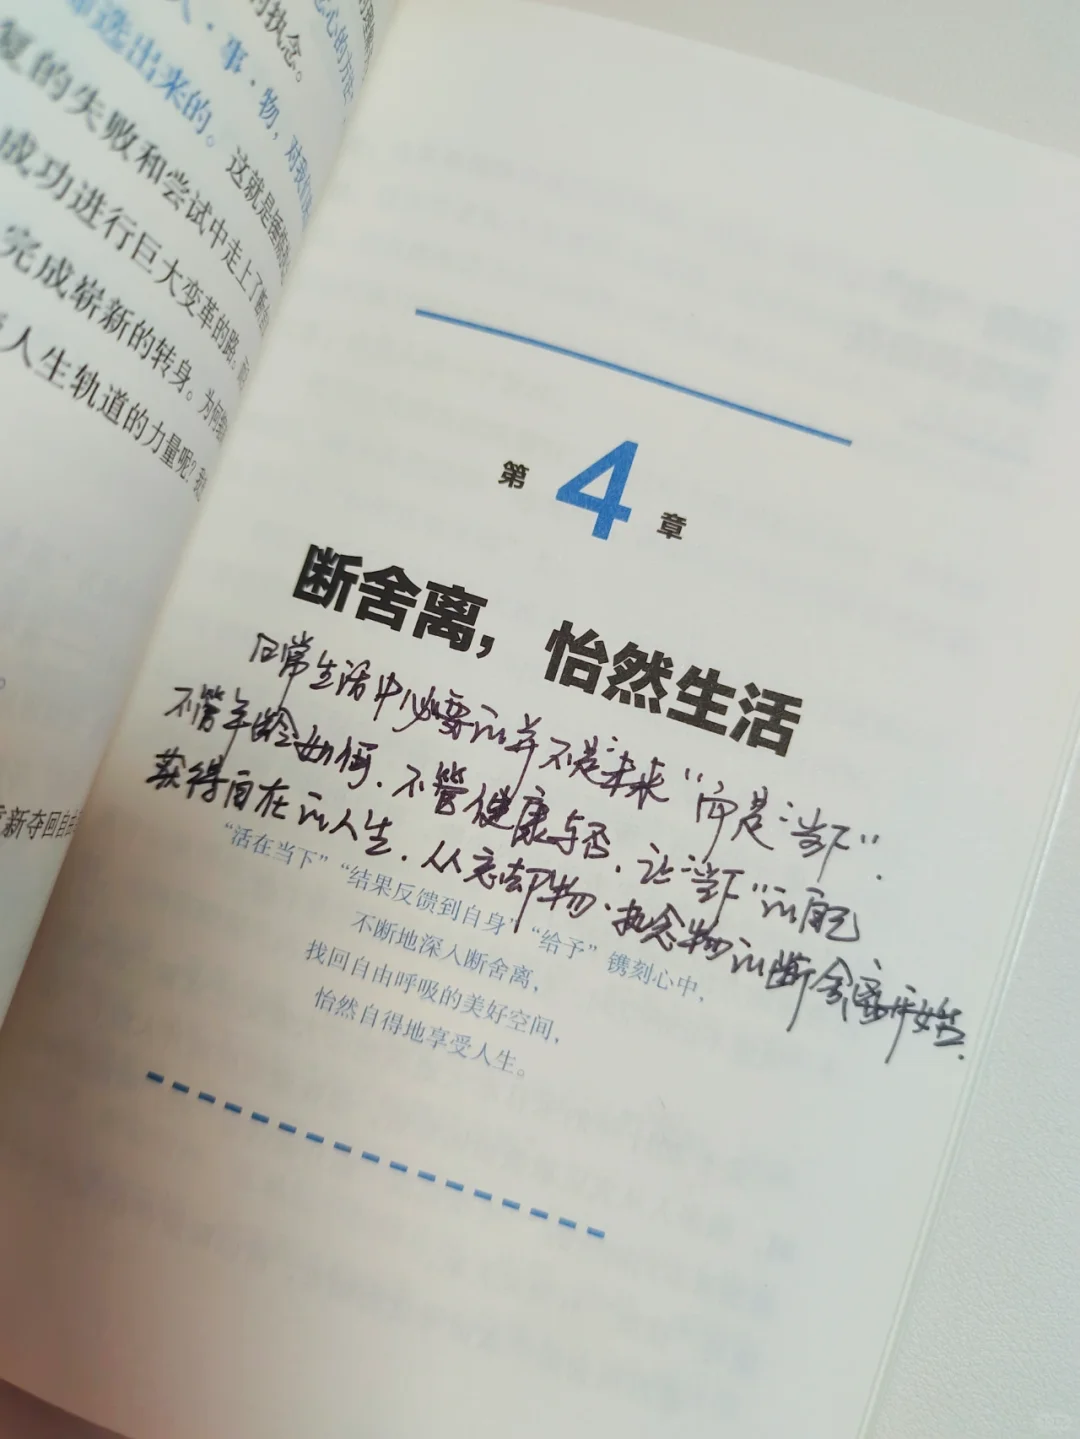 的执念。
人·事·物，对我们
筛选出来的。这就是
复的失败和尝试中走上了断
成功进行巨大变革的路。
完成崭新的转身。为何
人生轨道的力量呢？我
新夺回自
第4章
断舍离，怡然生活
日常生活中必要的并不是未来“而是“当下”.
不管年龄如何.不管健康与否.让“当下”的自己
获得自在的人生.从忘却物.执念物的断舍离开始.
“活在当下”“结果反馈到自身”“给予”镌刻心中，
不断地深入断舍离，
找回自由呼吸的美好空间，
怡然自得地享受人生。